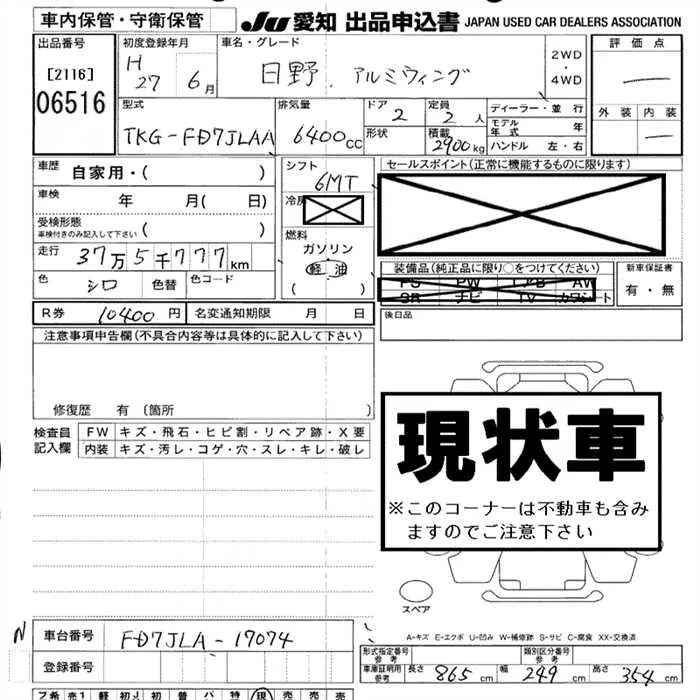 車内保管・守衛保管
JU 愛知 出品申込書 JAPAN USED CAR DEALERS ASSOCIATION
出品番号
[2116]
06516
初度登録年月
H
27 6月
車名・グレード
日野 アルミウィング
2WD
・
4WD
評価点
外装 内装
型式
TKG-FD7JLAA
排気量
6400cc
ドア
2
形状
定員
2人
積載
2900kg
ディーラー・並行
モデル
年式 年
ハンドル 左・右
車歴 自家用・( )
車検 年 月( 日)
受検形態
車検付きのみ記入して下さい ( )
走行 37万5千777km
色 シロ 色替 色コード
シフト
6MT
冷房
燃料
ガソリン
軽油
( )
セールスポイント(正常に機能するものに限ります)
装備品(純正品に限り○をつけてください)
PS PW エアB AW
SR ナビ TV カワシート
新車保証書
有・無
後日品
R券 10400円 名変通知期限 月 日
注意事項申告欄(不具合内容等は具体的に記入して下さい)
修復歴 有 (箇所 )
検査員
記入欄
FW キズ・飛石・ヒビ割・リペア跡・X要
内装 キズ・汚レ・コゲ・穴・スレ・キレ・破レ
現状車
※このコーナーは不動車も含み
ますのでご注意下さい
スペア
A-キズ E-エクボ U-凹み W-補修跡 S-サビ C-腐食 XX-交換済
N 車台番号 FD7JLA-17074
登録番号
形式指定番号
参考
類別区分番号
参考
車庫証明用
参考
長さ 865cm 幅 249cm 高さ 354cm